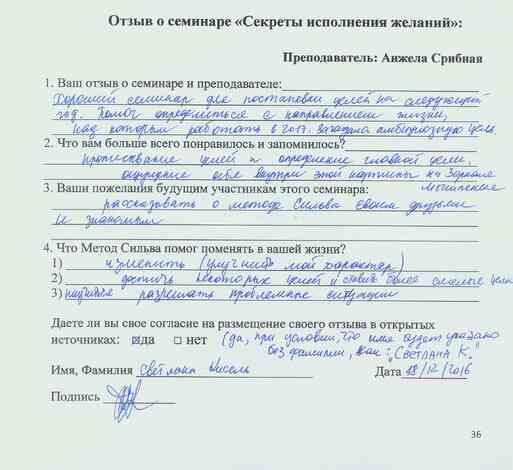 Отзыв о семинаре «Секреты исполнения желаний»:
Преподаватель: Анжела Срибная
1. Ваш отзыв о семинаре и преподавателе:
Хороший семинар для постановки целей на следующий
год. Помог определиться с направлением жизни,
над которым работать в 2017. Заказала амбициозную цель.
2. Что вам больше всего понравилось и запомнилось?
Прописывание целей и определение главной цели,
ощущение себя внутри этой картины на Зеркале
Мышления
3. Ваши пожелания будущим участникам этого семинара:
рассказывать о методе Сильва своим друзьям
и знакомым
4. Что Метод Сильва помог поменять в вашей жизни?
1) изменить (улучшить мой характер)
2) достичь некоторых целей и ставить более смелые цели
3) научился разрешать проблемные ситуации
Даете ли вы свое согласие на размещение своего отзыва в открытых
источниках: да нет (да, при условии, что имя будет указано
без фамилии, как: "СВЕТЛАНА К."
Имя, Фамилия Светлана Кисель Дата 18/12/2016
Подпись
36